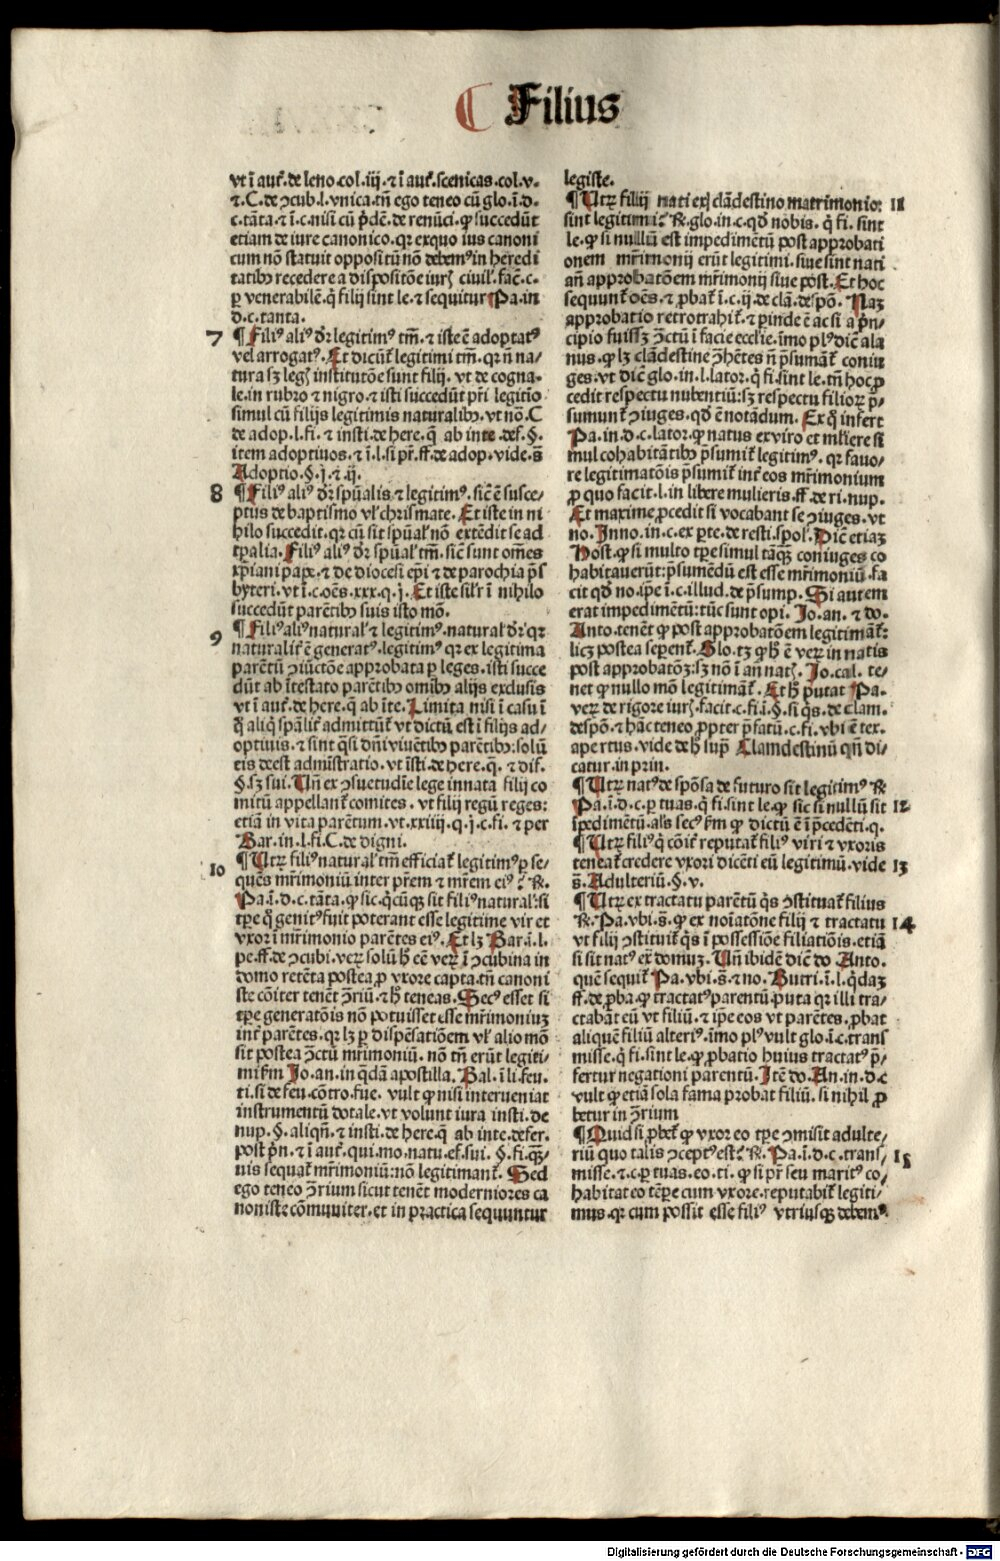 Filius
vt ī aut̃.de leno.col.iij.⁊ ī aut̃.scenicas.col.v.
⁊.C.de ↄcub.l.vnica.tn̄ ego teneo cū glo.ī.d.
c.tāta.⁊ ī.c.nisi cū p̄dē.de renūci.ꝙ succedūt
etiam de iure canonico.qꝛ exquo ius canoni
cum nō statuit oppositū nō debemꝰ in heredi
tatibꝰ recedere a dispositōe iurꝭ ciuil̓.fac̄.c.
ꝑ venerabilē.q̇ filij sint le.⁊ sequitur Pa.in
d.c.tanta.
7 ¶ Filiꝰ aliꝰ dr̄ legitimꝰ tm̄.⁊ iste ē adoptatꝰ
vel arrogatꝰ. Et dicūt̃ legitimi tm̄.qꝛ n̄ na/
tura sꝫ legꝭ institutōe sunt filij. vt de cogna.
le.in rubro ⁊ nigro.⁊ isti succedūt pr̄i legitio
simul cū filijs legitimis naturalibꝰ.vt nō.C
de adop.l.fi.⁊ insti.de here.q̄ ab inte.def.§.
item adoptiuos.⁊ ī.l.si pr̄.ff.de adop.vide.s̄
Adoptio.§.j.⁊.ij.
8 ¶ Filiꝰ aliꝰ dr̄ spūalis ⁊ legitimꝰ.sic̄ ē susce/
ptus de baptismo vl̓ chrismate. Et iste in ni
hilo succedit.qꝛ cū sit spūal̓ nō extēdit se ad
tꝑalia. Filiꝰ aliꝰ dr̄ spūal̓ tm̄.sic̄ sunt om̄es
xp̄iani pape.⁊ de diocesi ep̄i ⁊ de parochia p̄s
byteri.vt ī.c.oēs.xxx.q.j. Et iste sil̓r ī nihilo
succedūt parētibꝰ suis isto mō.
9 ¶ Filiꝰ aliꝰ natural̓ ⁊ legitimꝰ.natural̓ dr̄ qꝛ
naturalit̃ ē generatꝰ.legitimꝰ qꝛ ex legitima
parētū ↄiūctōe approbata ꝑ leges.isti succe
dūt ab ītestato parētibꝰ omībꝰ alijs exclusis
vt ī aut̃.de here.q̄ ab īte. Limita nisi ī casu ī
q̊ aliq̇ spāliť admittūt̃ vt dictū est ī filijs ad/
optiuis.⁊ sint q̄si dn̄i viuētibꝰ parētibꝰ:solū
eis deest admīstratio.vt īsti.de here.q̄.⁊ dif.
§.sꝫ sui. Un̄ ex ↄsuetudīe lege innata filij co
mitū appellant̃ comites. vt filij regū reges:
etiā in vita parētum.vt.xxiiij.q.j.c.fi.⁊ per
Bar.in.l.fi.C.de digni.
10 ¶ Utꝝ filiꝰ natural̓ tm̄ efficiat̃ legitimꝰ ꝑ se/
quēs mr̄imoniū inter pr̄em ⁊ mr̄em eiꝰ? ℟.
Pa.ī.d.c.tāta.ꝙ sic.q̇cūqꝫ sit filiꝰ natural̓:si
tꝑe q̊ genitꝰ fuit poterant esse legitime vir et
vxor ī mr̄imonio parētes eiꝰ. Et lꝫ Bar.ī.l.
pe.ff.de ↄcubi.veꝝ solū h̄ eē veꝝ ī ↄcubina in
domo retēta postea ꝓ vxore capta.tn̄ canoni
ste cōiter tenēt ↄ̄riū.⁊ h̄ teneas. Secꝰ esset si
tꝑe generatōis nō potuisset esse mr̄imoniuꝫ
int̃ parētes.qꝛ lꝫ ꝑ dispēsatiōem vl̓ alio mō
sit postea ↄ̄ctū mr̄imoniū. nō tn̄ erūt legiti/
mi ẜm Jo.an.in q̄dā apostilla. Bal.ī li.feu.
ti.si de feu.cōtro.fue. vult ꝙ nisi interueniat
instrumentū dotale.vt volunt iura insti.de
nup.§.aliqn̄.⁊ insti.de here.q̄ ab inte.defer.
post p̄n.⁊ ī aut̃.qui.mo.natu.ef.sui.§.fi.q̄ꝫ/
uis sequat̃ mr̄imoniū:nō legitimant̃. Sed
ego teneo ↄ̄rium sicut tenēt moderniores ca
noniste cōmuniter.et in practica sequuntur
legiste.
¶ Utꝝ filij nati ex clādestino matrimonio: 11
sint legitimi? ℟.glo.in.c.qd̄ nobis. q̇ fi. sint
le.ꝙ si nullū est impedimētū post approbati
onem mr̄imonij erūt legitimi.siue sint nati
an̄ approbatōem mr̄imonij siue post. Et hoc
sequunt̃ oēs.⁊ ꝓbat̃ ī.c.ij.de clā.despō. Naꝫ
approbatio retrotrahit̃.⁊ ꝑinde ē ac si a p̄n/
cipio fuissꝫ ↄ̄ctū ī facie ecclie.īmo plꝰ dic̄ ala
nus.ꝙ lꝫ clādestine ↄ̄hētes n̄ p̄sumāt̃ coniu
ges.vt dic̄ glo.in.l.lator.q̇ fi.sint le.tn̄ hoc ꝓ
cedit respectu nubentiū:sꝫ respectu filioꝝ p̄/
sumunt̃ ↄiuges.qd̄ ē notādum. Ex q̊ infert
Pa.in.d.c.lator.ꝙ natus ex viro et mīiere si
mul cohabitātibꝰ p̄sumit̃ legitimꝰ. qꝛ fauo/
re legitimatōis p̄sumit̃ int̃ eos mr̄imonium
ꝓ quo facit.l.in libere mulieris.ff.de ri.nup.
Et maxime ꝓcedit si vocabant se ↄiuges.vt
no. Inno.in.c.ex ꝑte.de resti.spol̓. Dic̄ etiaꝫ
Host.ꝙ si multo tꝑe simul tāqꝫ coniuges co
habitauerūt:p̄sumēdū est esse mr̄imoniū.fa
cit qd̄ no.ip̄e ī.c.illud.de p̄sump. Si autem
erat impedimētū:tūc sunt opi. Jo.an. ⁊ do.
Anto.tenēt ꝙ post approbatōem legitimāt̃:
licꝫ postea seꝑent̃. Glo.tꝫ ꝙ h̄ ē veꝝ in natis
post approbatōꝫ:sꝫ nō ī an̄ natꝭ. Jo.cal. te/
net ꝙ nullo mō legitimāt̃. Et h̄ putat Pa.
veꝝ de rigore iurꝭ.facit.c.fi.ī.§.si q̇s.de clam.
despō.⁊ hāc teneo ꝓpter p̄fatū.c.fi.vbi ē tex.
apertus.vide de h̄ suꝑ Clamdestinū qn̄ di/
catur.in prin.
¶ Utꝝ natꝰ de spōsa de futuro sit legitimꝰ ℟
Pa.ī.d.c.ꝑ tuas.q̇ fi.sint le.ꝙ sic si nullū sit 12
īpedimētū.als secꝰ ẜm ꝙ dictū ē ī p̄cedēti.q.
¶ Utꝝ filiꝰ q̇ cōit̃ reputat̃ filiꝰ viri ⁊ vxoris
teneat̃ credere vxori dicēti eū legitimū.vide 13
s̄. Adulteriū.§.v.
¶ Utꝝ ex tractatu parētū q̇s ↄstituat̃ filius
℟.Pa.vbi.s̄.ꝙ ex noīatōne filij ⁊ tractatu 14
vt filij ↄstituit̃ q̇s ī possessiōe filiatiōis.etiā
si sit natꝰ ex domuꝫ. Un̄ ibidē dic̄ do Anto.
quē sequit̃ Pa.vbi.s̄.⁊ no. Butri.ī.l.q̇daꝫ
ff.de ꝓba.ꝙ tractatꝰ parentū puta qꝛ illi tra/
ctabāt eū vt filiū.⁊ ip̄e eos vt parētes.ꝓbat
aliquē filiū alteriꝰ.īmo plꝰ vult glo.ī.c.trans
misse.q̇ fi.sint le.ꝙ ꝓbatio huius tractatꝰ p̄/
fertur negationi parentū. Itē do.An.in.d.c
vult ꝙ etiā sola fama probat filiū.si nihil ꝓ
betur in ↄ̄rium
¶ Quid si ꝓbet̃ ꝙ vxor eo tꝑe ↄmisit adulte/
riū quo talis ↄceptꝰ est? ℟.Pa.ī.d.c.trans/ 15
misse.⁊.c.ꝑ tuas.eo.ti.ꝙ si pr̄ seu maritꝰ co/
habitat eo tēꝑe cum vxore.reputabit̃ legiti/
mus.qꝛ cum possit esse filiꝰ vtriusqꝫ debemꝰ
Digitalisierung gefördert durch die Deutsche Forschungsgemeinschaft - DFG